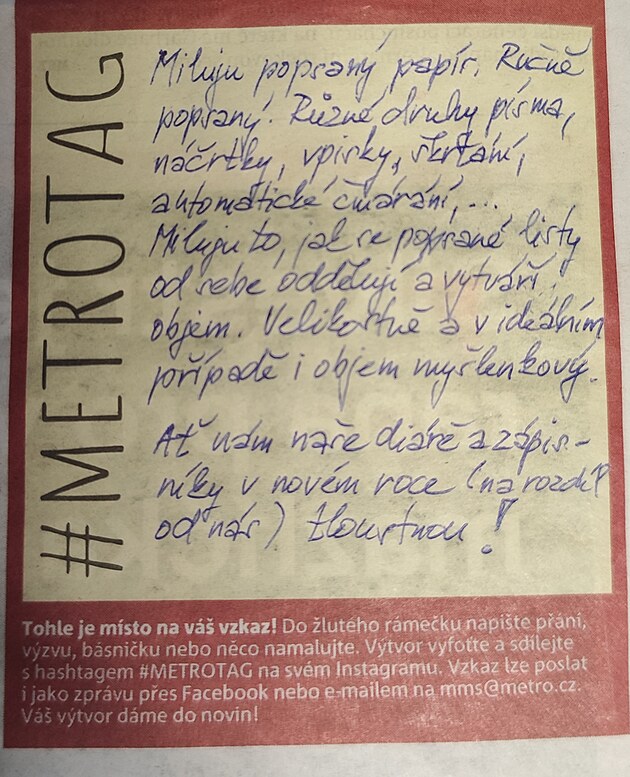 #METROTAG
Miluju popsaný papír. Ručně
popsaný. Různé druhy písma,
náčrtky, vpisky, škrtání,
automatické čmárání,...
Miluju to, jak se popsané listy
od sebe oddělují a vytváří
objem. Velikostně a v ideálním
případě i objem myšlenkový.
Ať nám naše diáře a zápis-
níky v novém roce (na rozdíl
od nás) tloustnou!
Tohle je místo na váš vzkaz! Do žlutého rámečku napište přání,
výzvu, básničku nebo něco namalujte. Výtvor vyfoťte a sdílejte
s hashtagem #METROTAG na svém Instagramu. Vzkaz lze poslat
i jako zprávu přes Facebook nebo e-mailem na mms@metro.cz.
Váš výtvor dáme do novin!